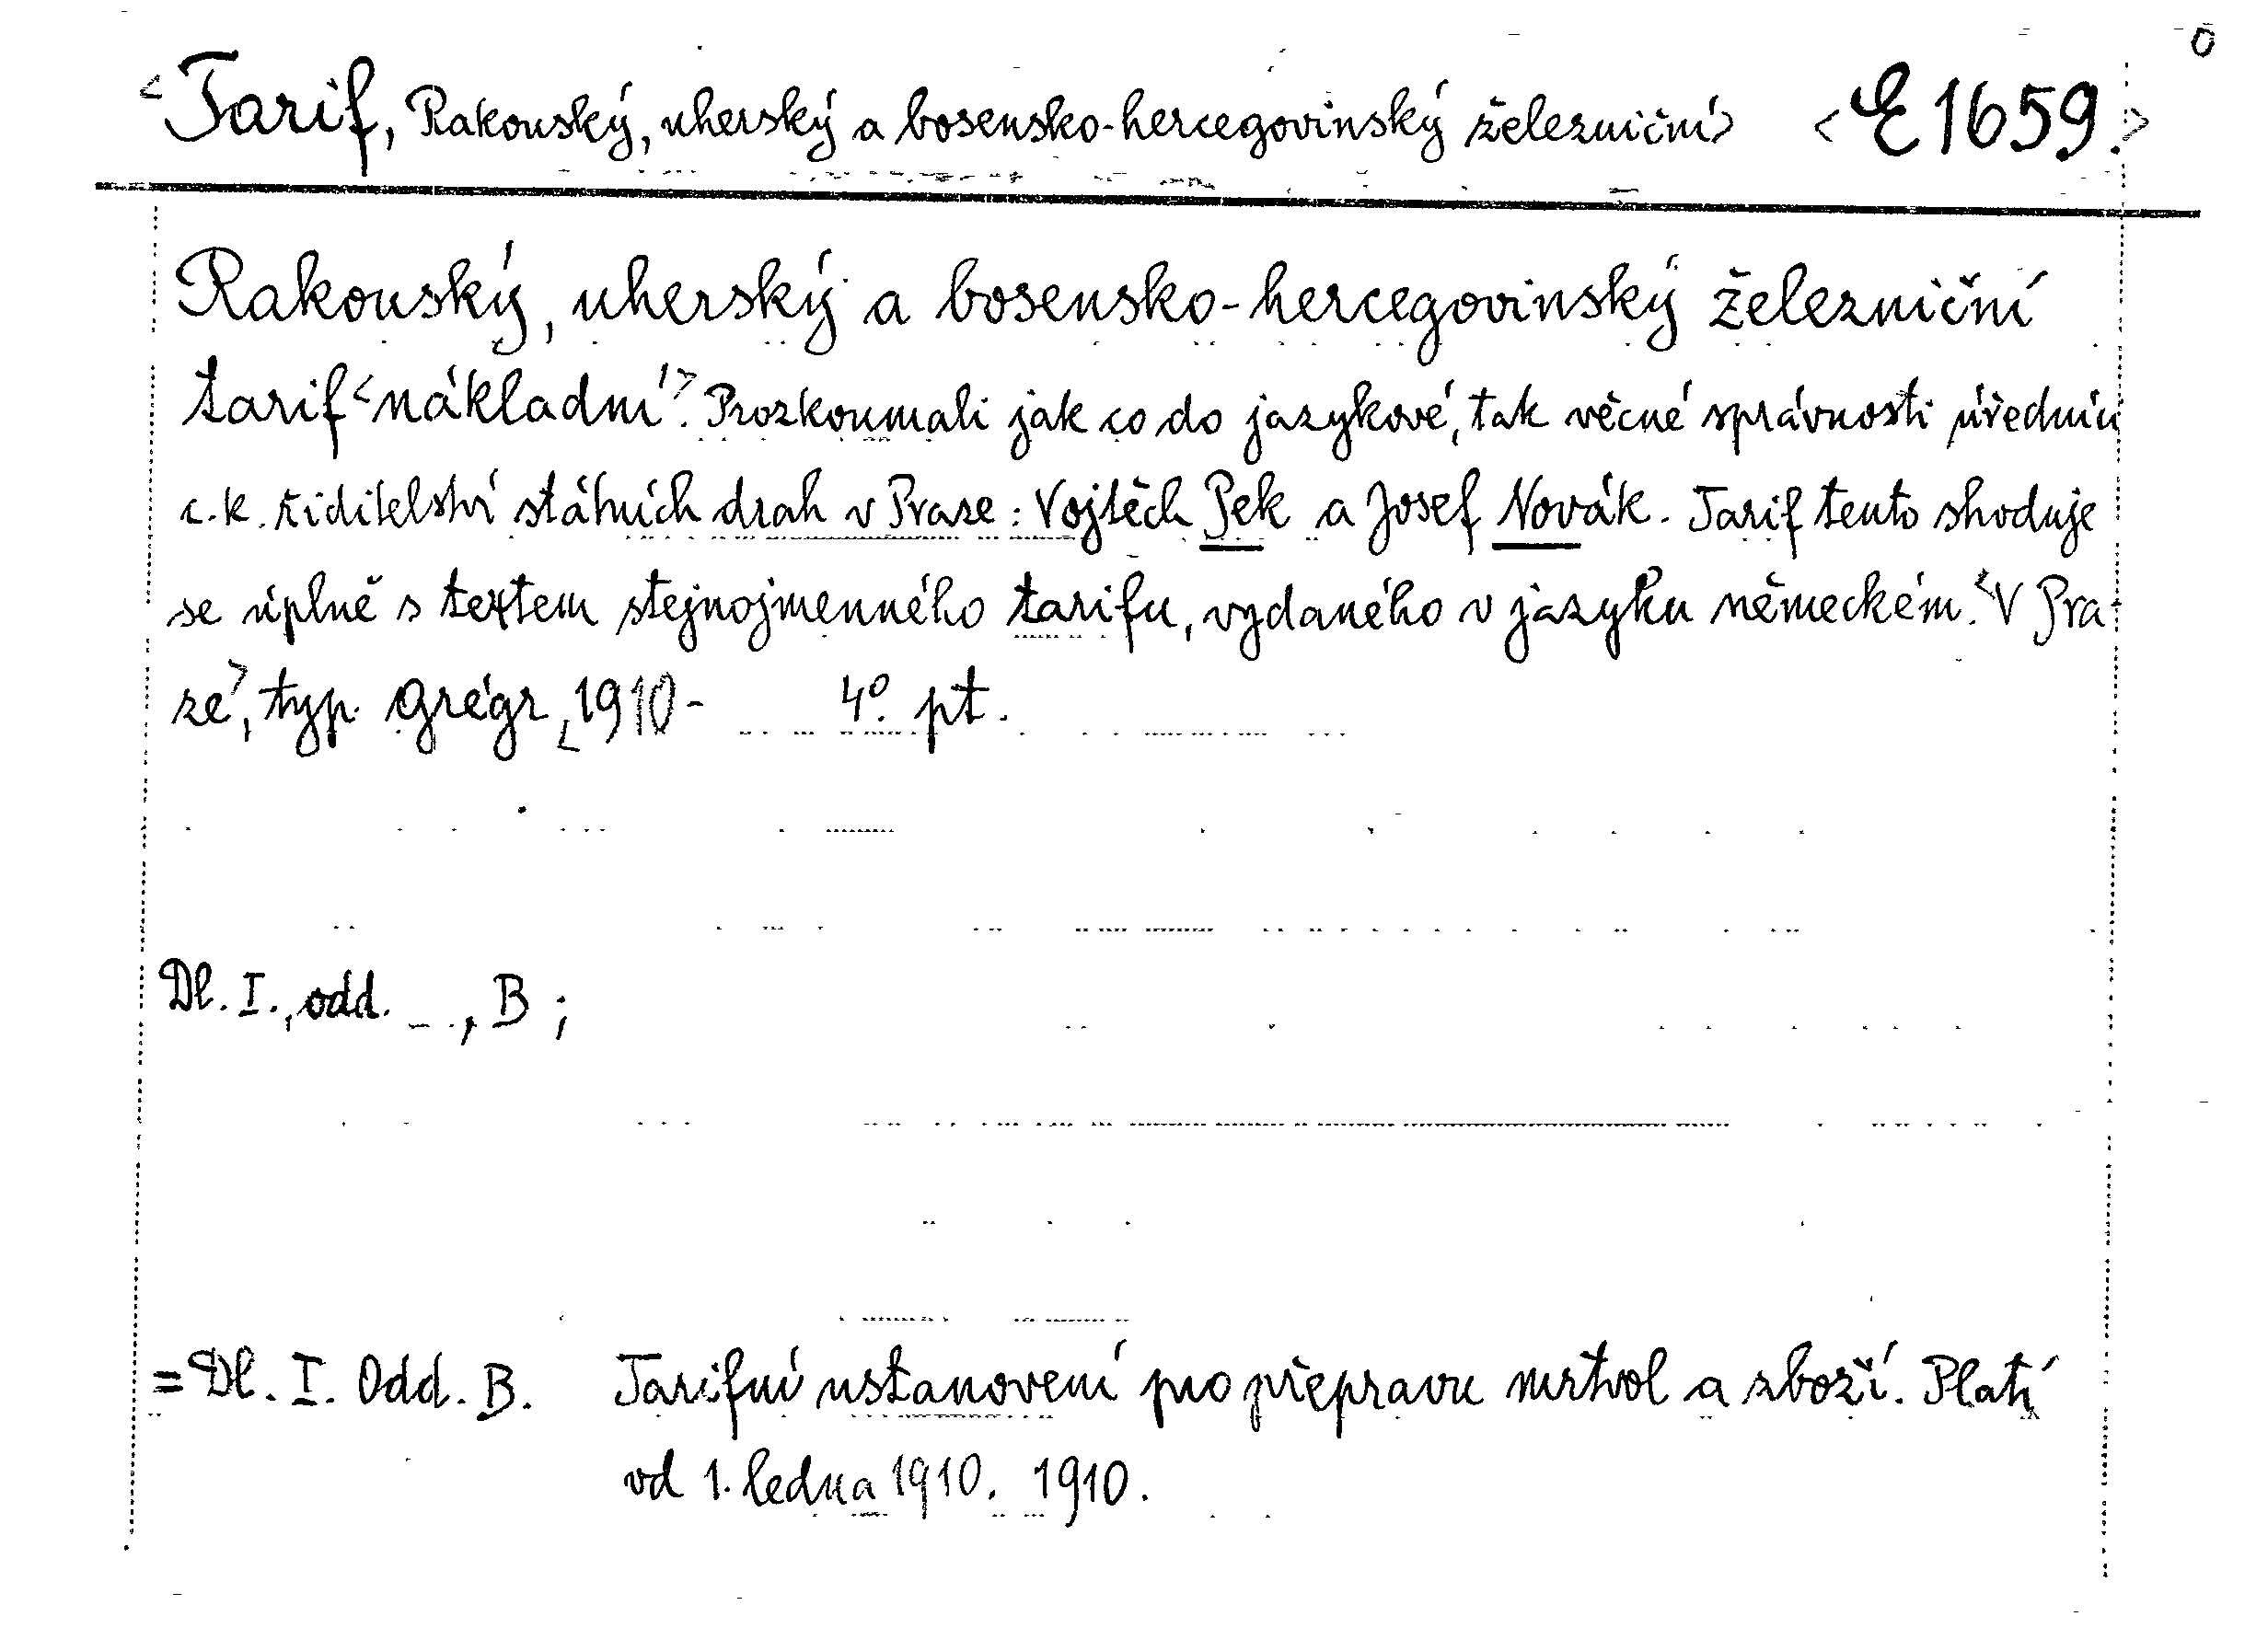 <Tarif, Rakouský, uherský a bosensko-hercegovinský železniční> <E 1659.>
Rakouský, uherský a bosensko-hercegovinský železniční
tarif <nákladní>. Prozkoumali jak co do jazykové, tak věcné správnosti úředníci
c.k. ředitelství státních drah v Praze: Vojtěch Pek a Josef Novák. Tarif tento shoduje
se úplně s textem stejnojmenného tarifu, vydaného v jazyku německém. <V Pra-
ze>, typ. Grégr, 1910- 4°. pt.
Dl. I., odd. _ , B ;
= Dl. I. Odd. B. Tarifní ustanovení pro přepravu mrtvol a zboží. Platí
od 1. ledna 1910. 1910.